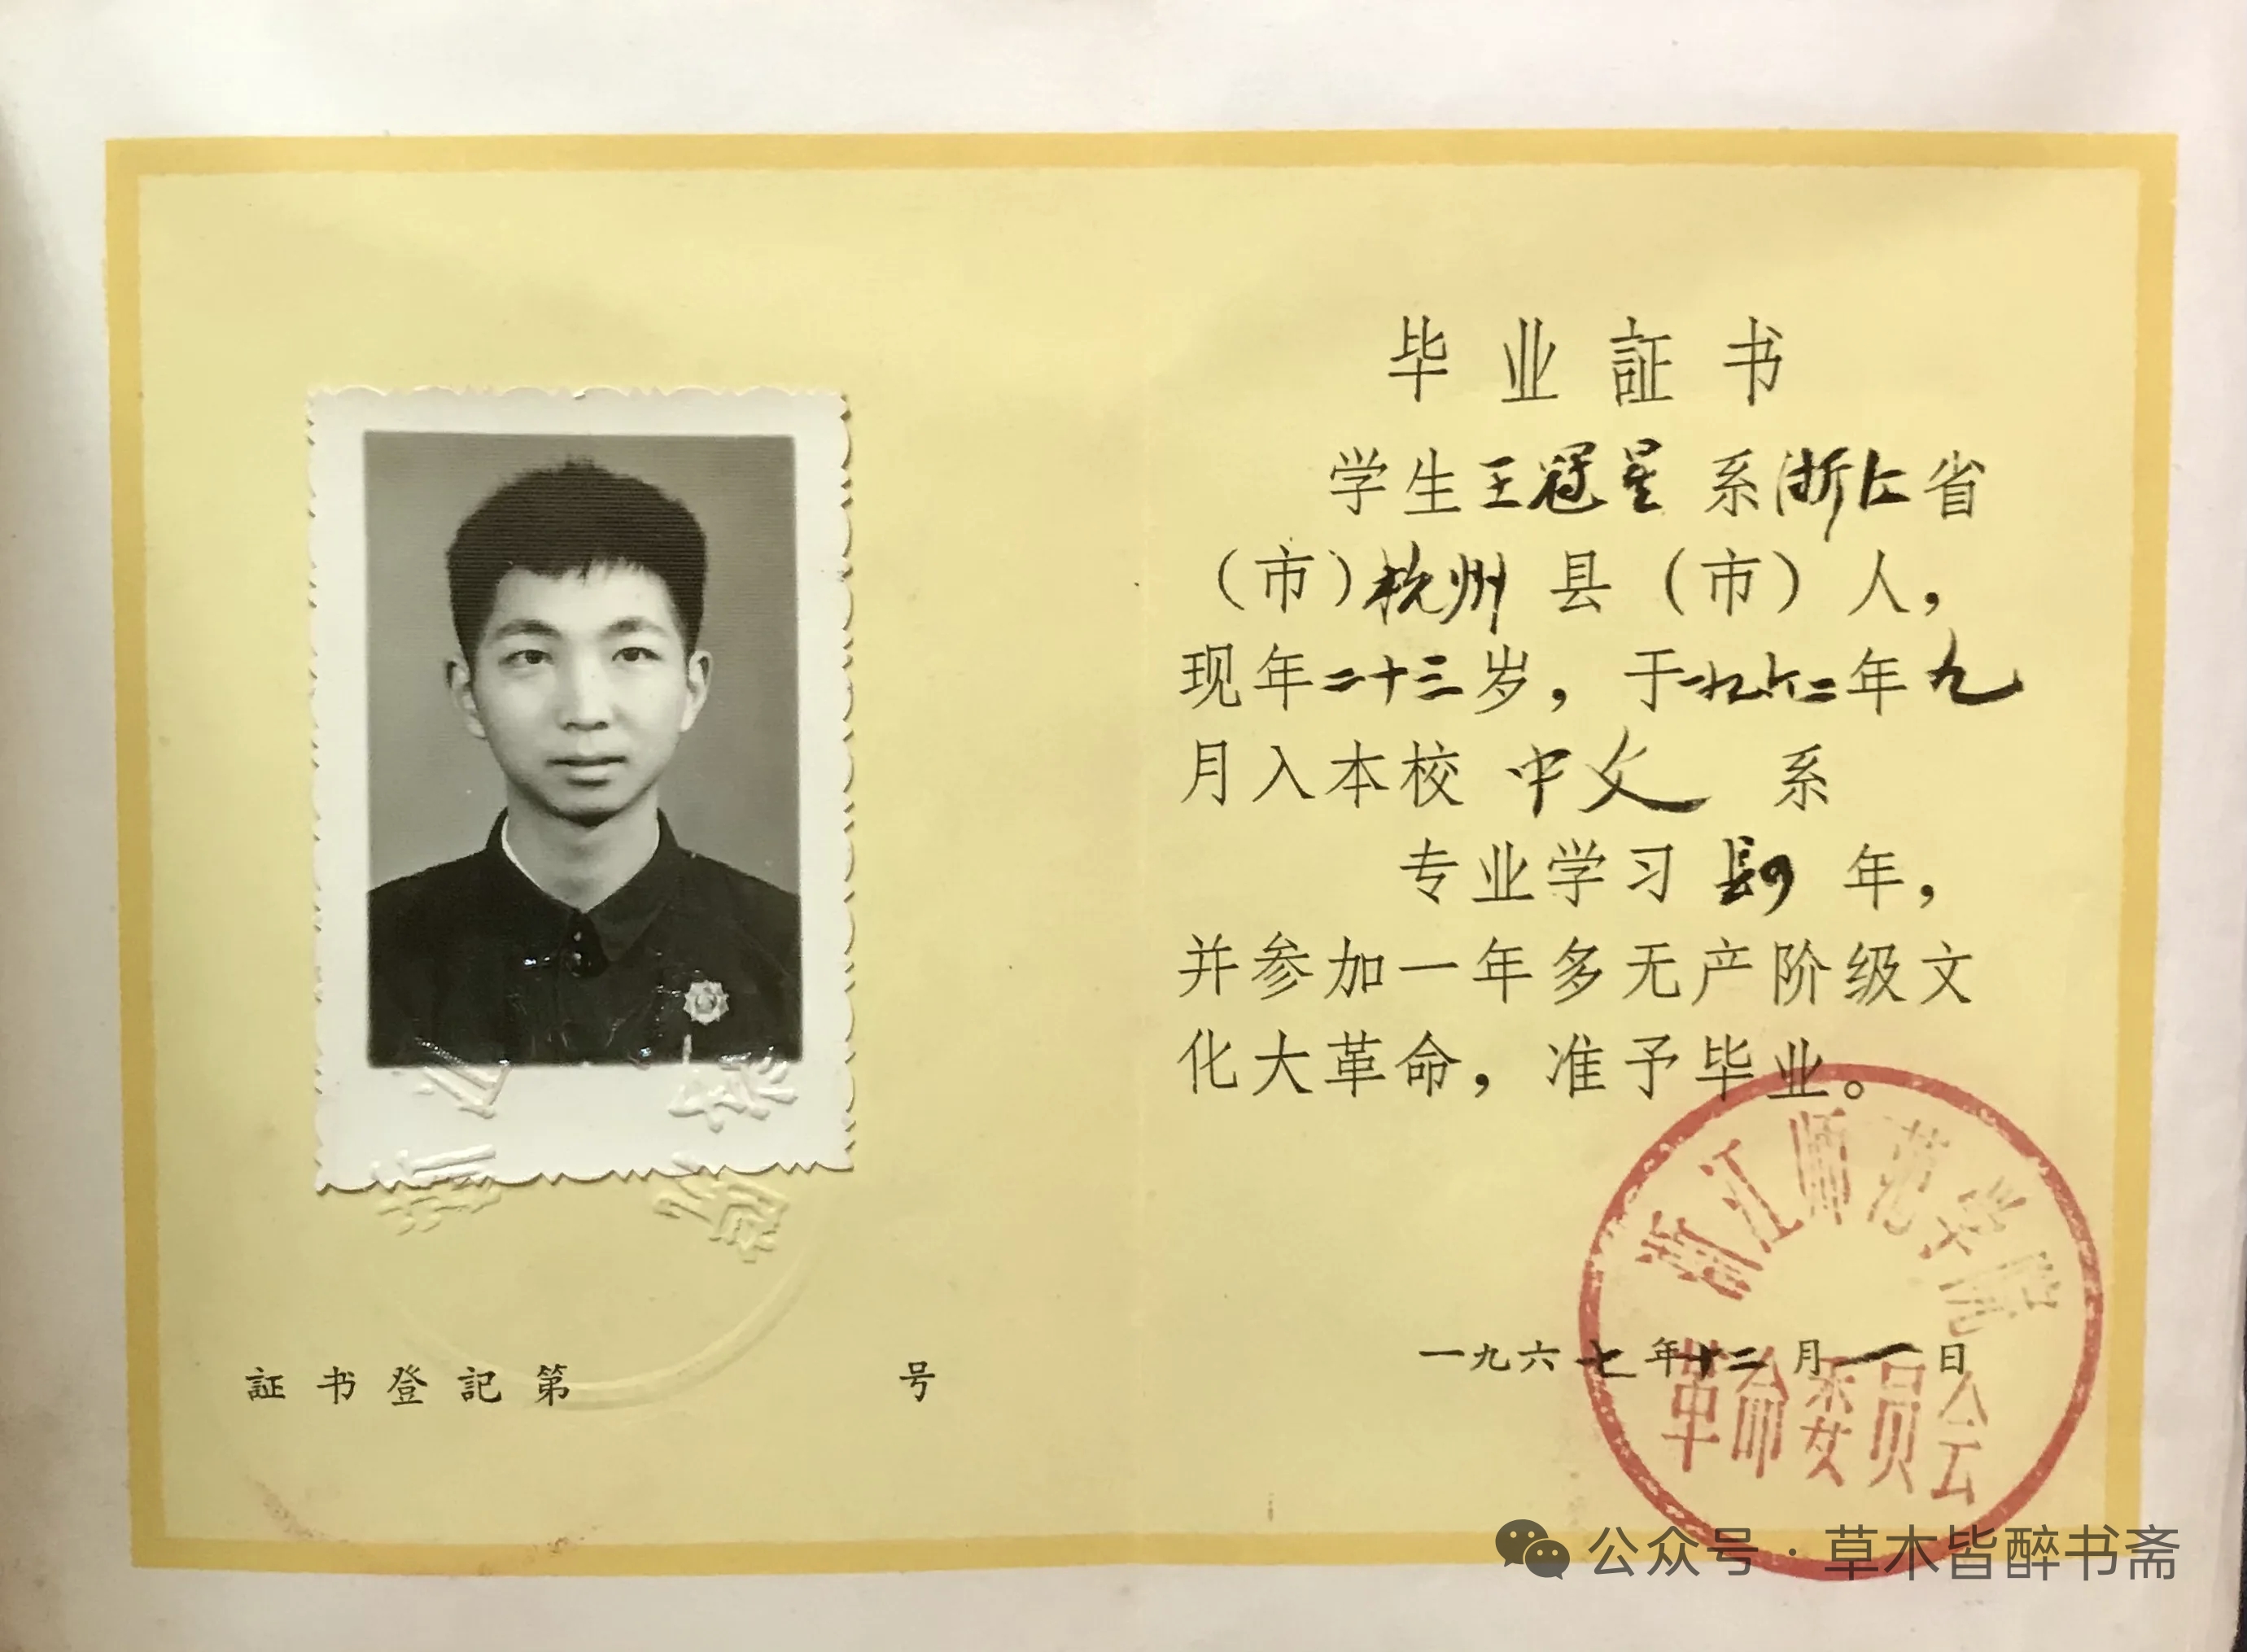 毕业証书
学生王冠星系浙江省
（市）杭州县（市）人，
现年二十三岁，于一九六二年九
月入本校 中文 系
专业学习 年，
并参加一年多无产阶级文
化大革命，准予毕业。
浙江师范学院
一九六七年十二月一日
革命委员会
証书登記第 号
公众号·草木皆醉书斋